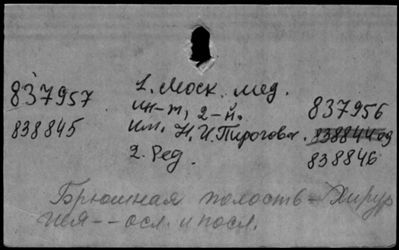 837957 1. Моск. мед.
ин-т, 2-й. 837956
838845 им. Н.И.Пирогова. 838844
2. Ред. 838846
Брюшная полость - Хирур
гия -- осл. и посл.